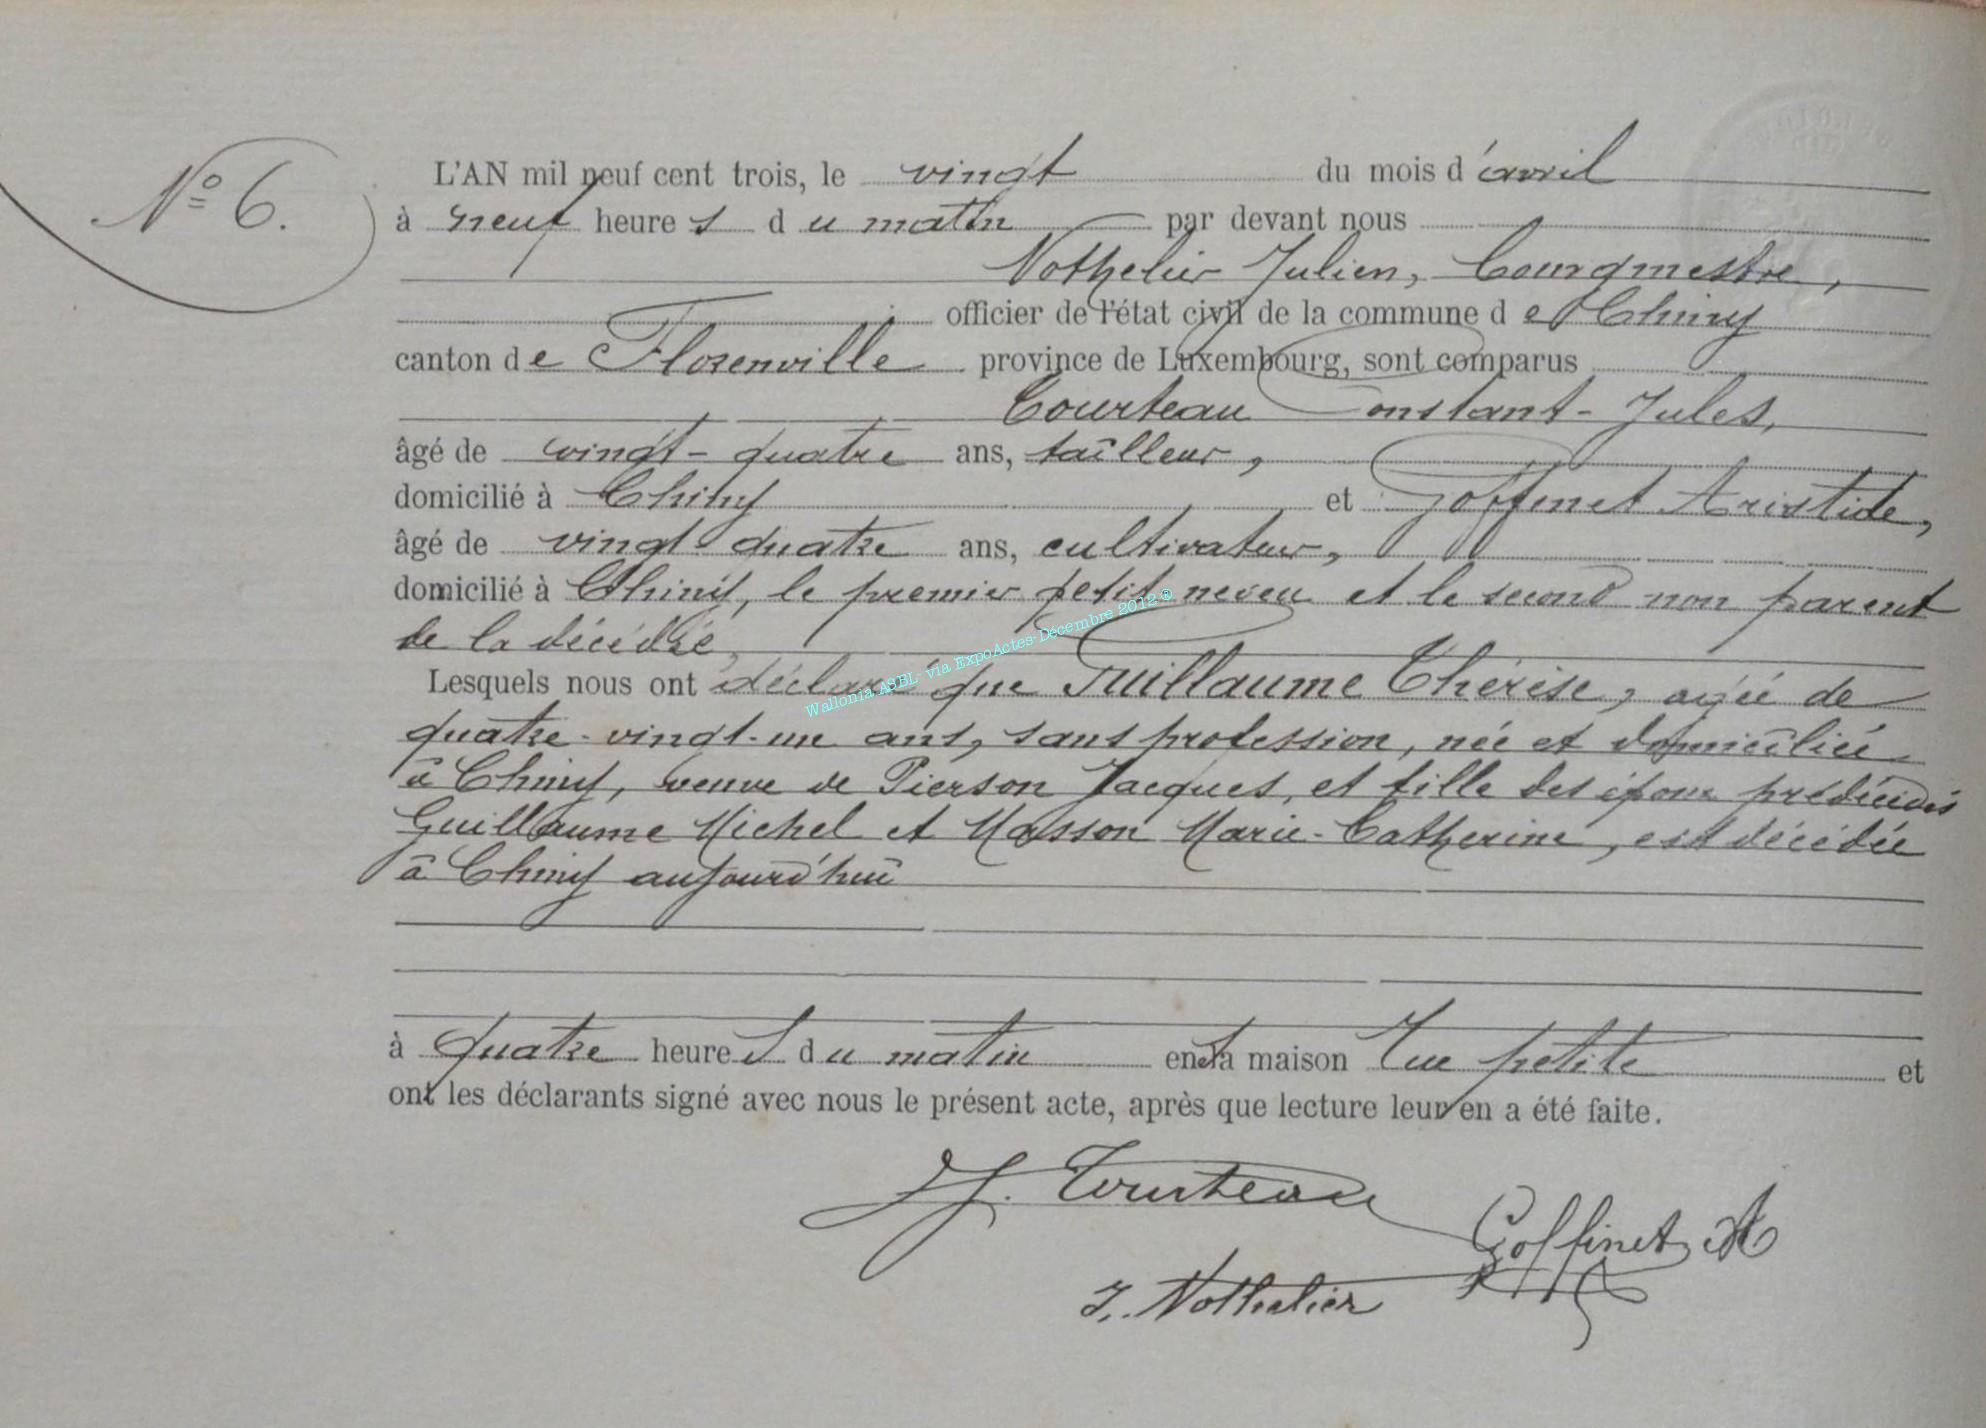 N° 6.
L'AN mil neuf cent trois, le vingt du mois d'avril
à neuf heures du matin par devant nous
Nothelier Julien, Bourgmestre,
officier de l'état civil de la commune de Chiny
canton de Florenville province de Luxembourg, sont comparus
Tourteau Constant-Jules,
âgé de vingt-quatre ans, tailleur,
domicilié à Chiny et Goffinet Aristide,
âgé de vingt-quatre ans, cultivateur,
domicilié à Chiny, le premier petit neveu et le second non parent
de la décédée,
Lesquels nous ont déclaré que Guillaume Thérèse, agée de
quatre-vingt-un ans, sans profession, née et domiciliée
à Chiny, veuve de Pierson Jacques, et fille des époux prédécédés
Guillaume Michel et Masson Marie-Catherine, est décédée
à Chiny aujourd'hui
à quatre heures du matin en sa maison rue petite et
ont les déclarants signé avec nous le présent acte, après que lecture leur en a été faite.
J. Tourteau
Goffinet A
J. Nothelier
Wallonia ASBL- via ExpoActes-Décembre 2012 ®